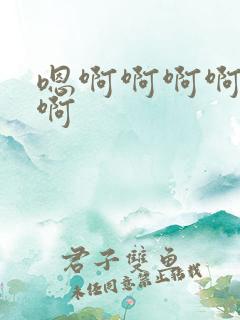 嗯啊啊啊啊
啊
君子雙魚
未经同意禁止转载